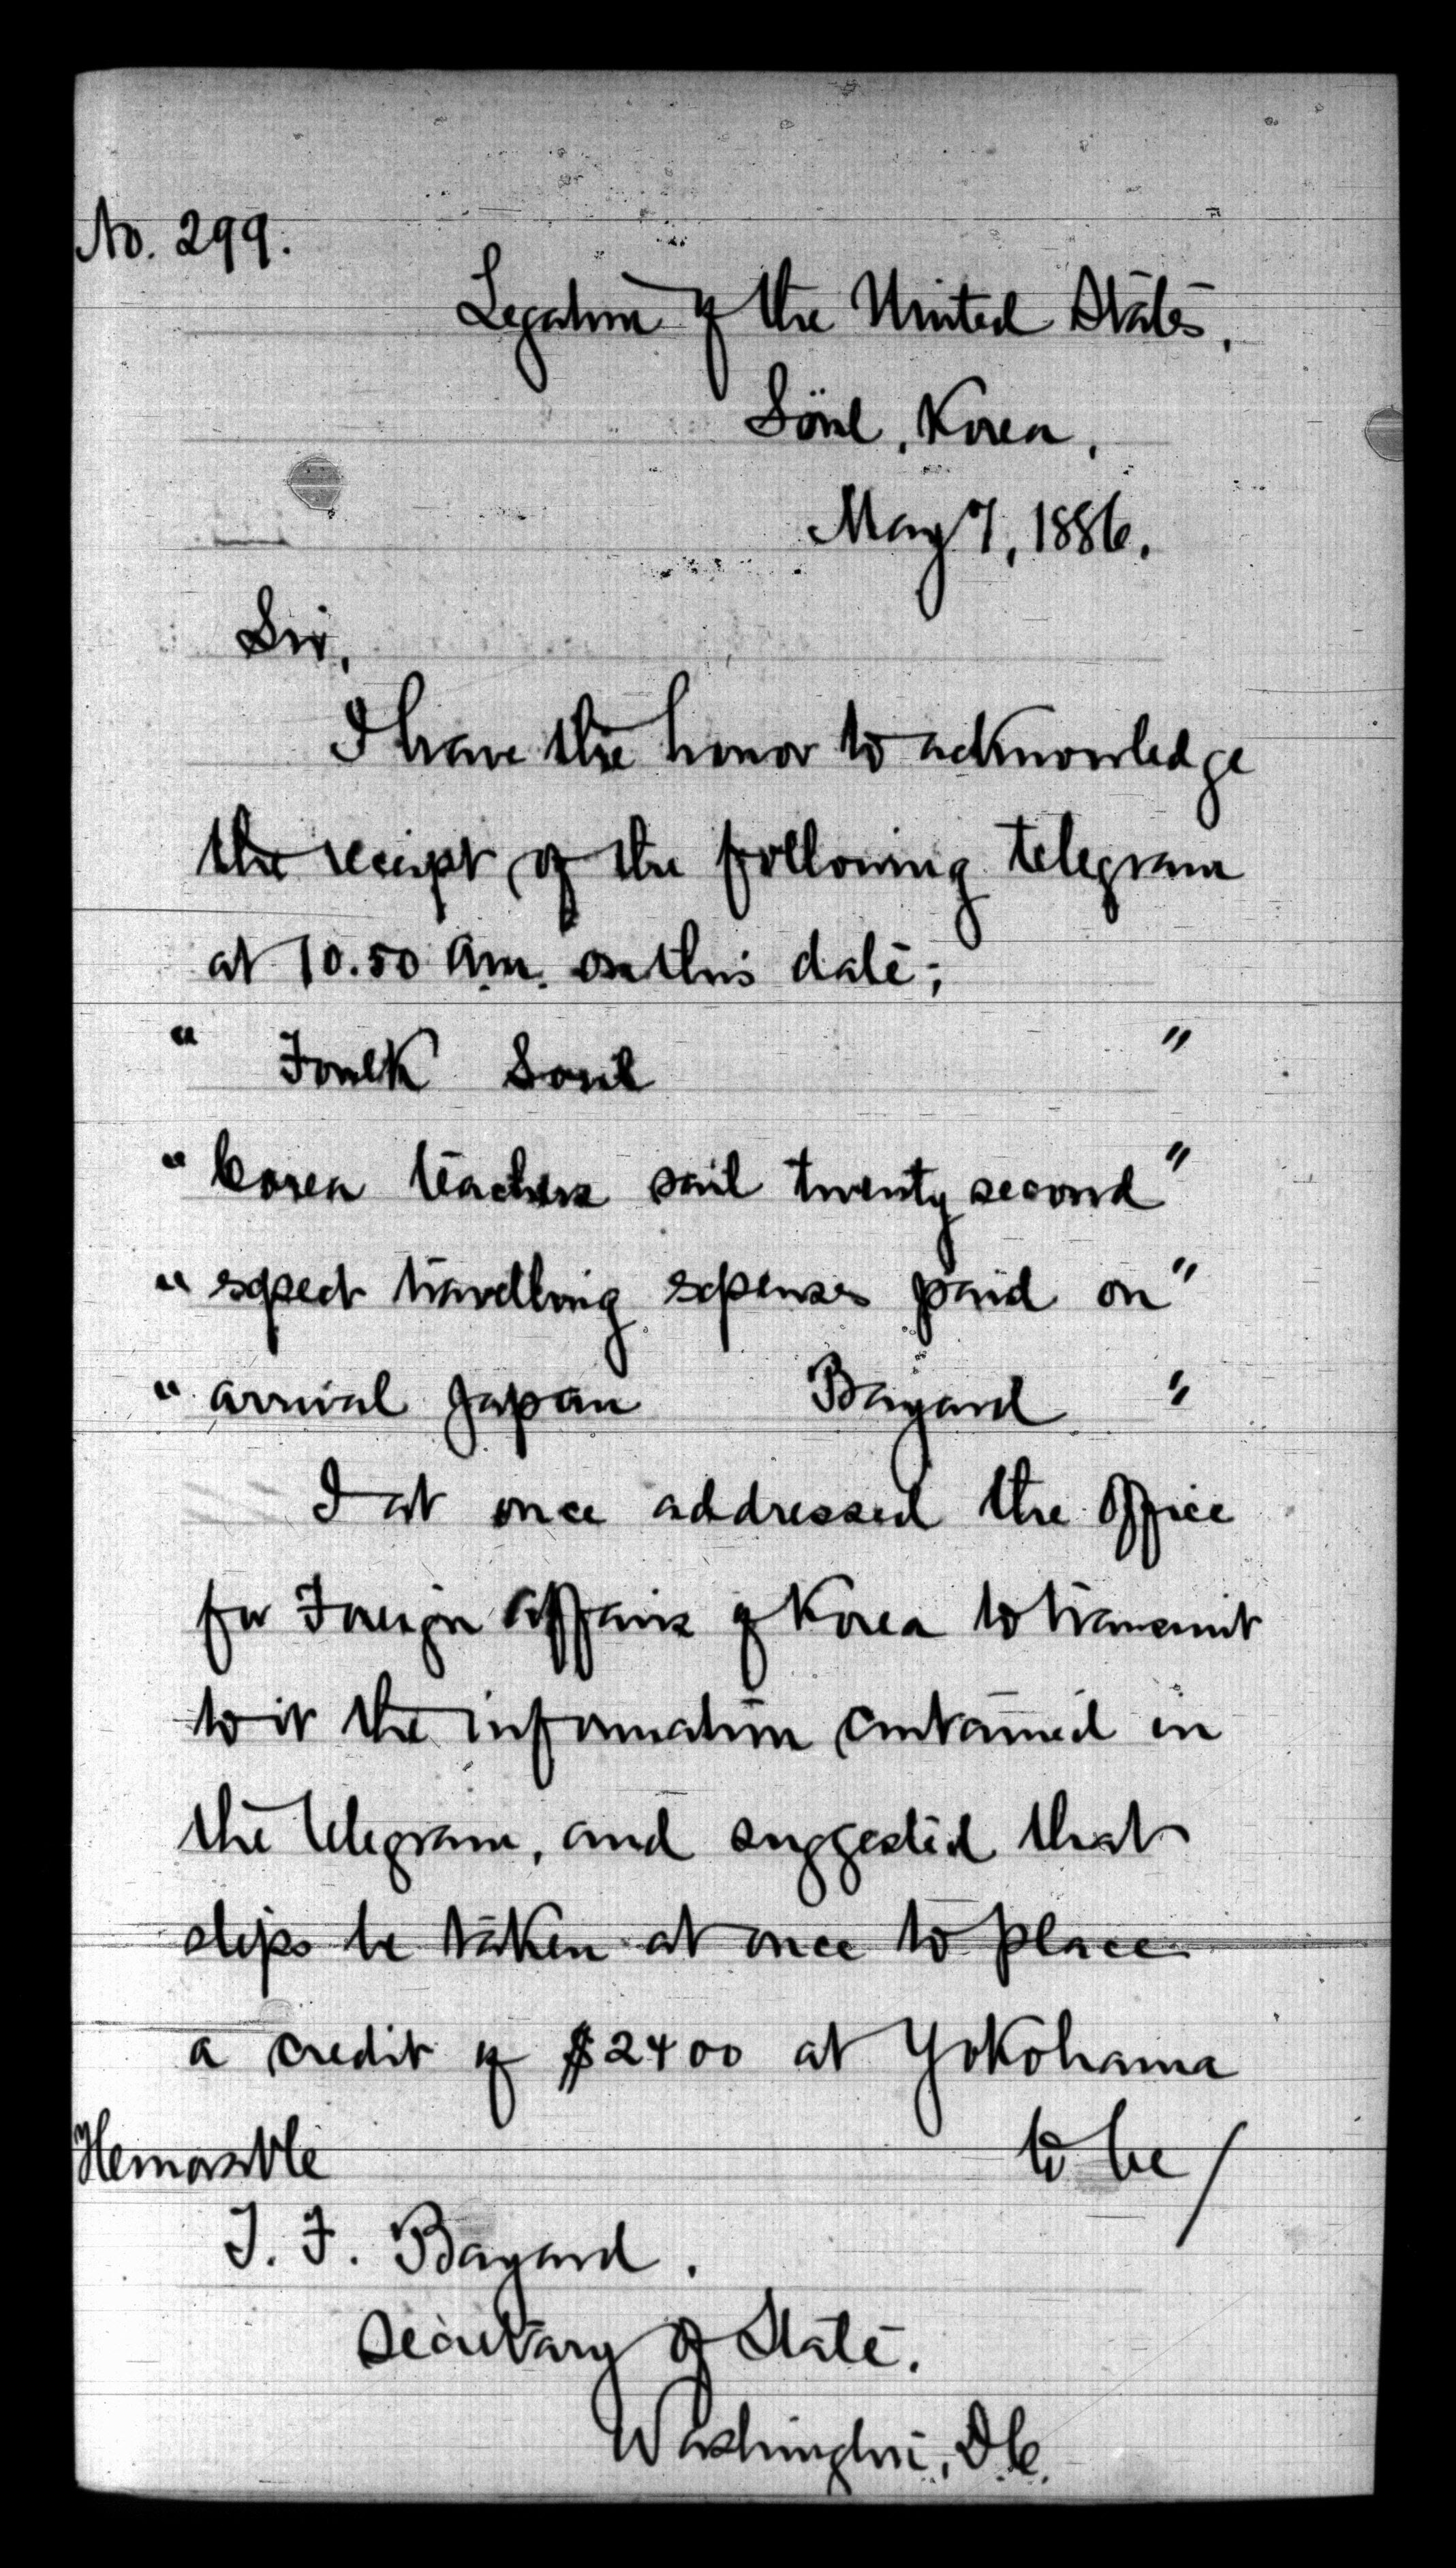 No. 299.
Legation of the United States,
Söul, Korea,
May 7, 1886.
Sir,
I have the honor to acknowledge
the receipt of the following telegram
at 10.50 a.m. on this date;
" Foulk Soul "
" Corea teachers sail twenty second "
" expect travelling expenses paid on "
" arrival Japan Bayard "
I at once addressed the Office
for Foreign Affairs of Korea to transmit
to it the information contained in
the telegram, and suggested that
steps be taken at once to place
a credit of $2400 at Yokohama
to be/
Honorable
T. F. Bayard.
Secretary of State.
Washington, D.C.